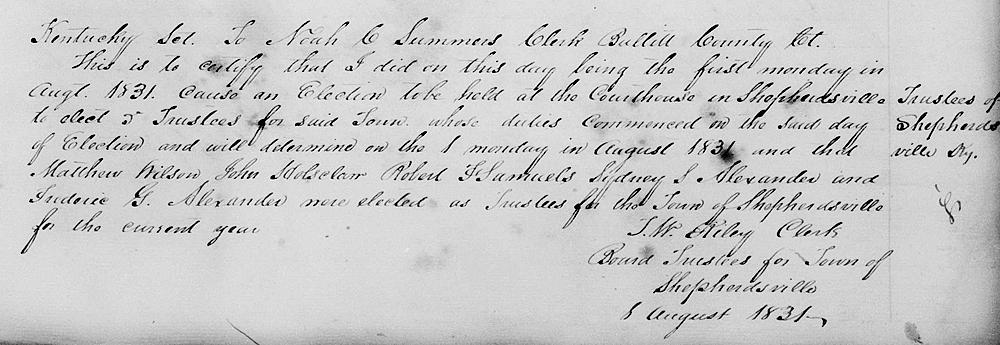 Kentucky Sct. To Noah C Summers Clerk Bullitt County Ct.
This is to certify that I did on this day being the first monday in
Augt. 1831. cause an Election to be held at the Courthouse in Shepherdsville
to elect 5 Trustees for said Town. whose duties commenced on the said day
of Election and will determine on the 1 monday in August 1831 and that
Matthew Wilson John Holsclaw Robert F Samuels Sydney S Alexander and
Frederic G. Alexander were elected as Trustees for the Town of Shepherdsville
for the current year
T. W. Riley Clerk
Board Trustees for Town of
Shepherdsville
1 August 1831
Trustees of
Shepherds
ville Ky.